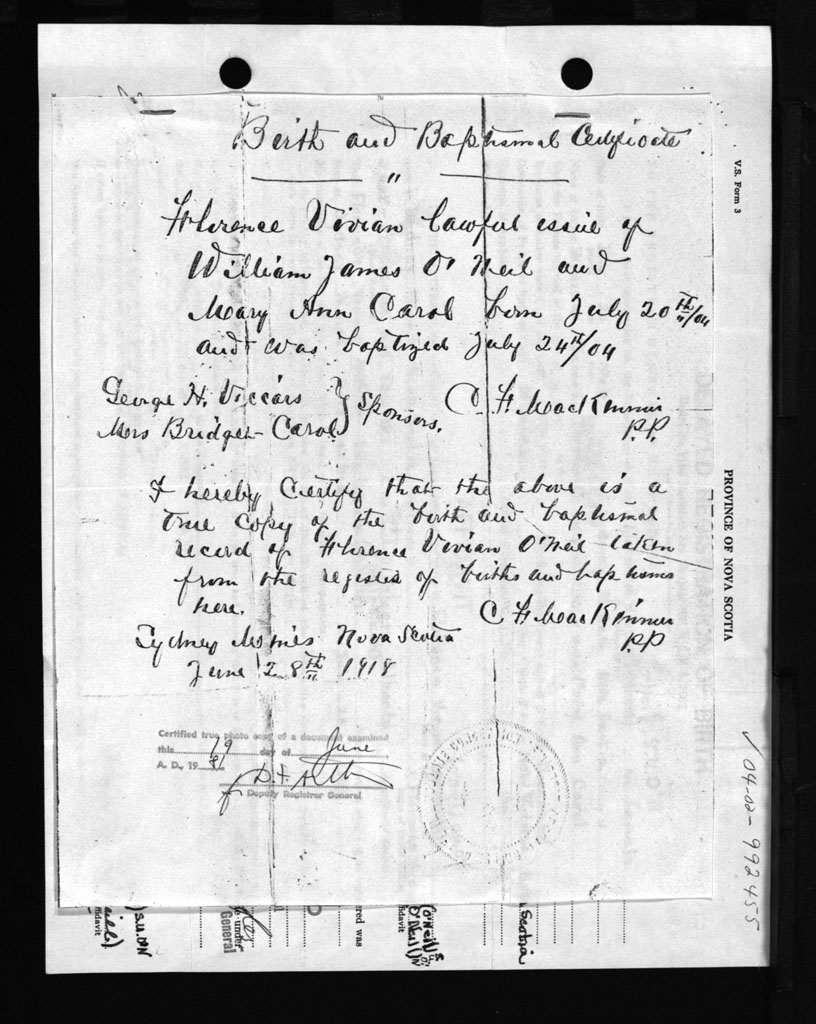 Birth and Baptismal Certificate
"
Florence Vivian lawful issue of
William James O'Neil and
Mary Ann Carol born July 20th/04
and was baptized July 24th/04
George H. Viccars
Mrs Bridget Carol } Sponsors.
C. F. MacKinnon
P.P.
I hereby Certify that the above is a
true Copy of the birth and baptismal
record of Florence Vivian O'Neil taken
from the register of births and baptisms
here.
C F MacKinnon
P.P
Sydney Mines Nova Scotia
June 28th 1918
Certified true photo copy of a document examined
this 19 day of June
A. D., 19 81
Deputy Registrar General
V.S. Form 3
PROVINCE OF NOVA SCOTIA
✓ 04-02-992455
ered was
General
under
(O'Neill
fidavit
Scotia